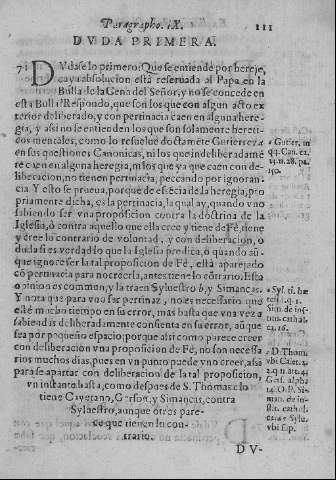 Paragrapho. IX. 111
DVDA PRIMERA.
71 DVdase lo primero: Que se entiende por hereje,
cuya absolucion està reseruada al Papa en la
Bulla de la Cena del Señor, y no se concede en
esta Bulla? Respondo, que son los que con algun acto ex
terior deliberado, y con pertinacia caen en alguna here-
gia, y asi no se entienden los que son solamente hereti
cos mentales, como lo resuelue doctamẽte Gutierrez a
en sus questiones Canonicas, ni los que indeliberadamẽ
te caen en alguna heregia, ni los que ya que caen con de-
liberacion, no tienen pertinacia, peccando por ignoran-
cia Y esto se prueua, porque de esẽcia de la heregia, pro
priamente dicha, es la pertinacia, la qual ay, quando vno
sabiendo ser vna proposicion contra la doctrina de la
Iglesia, ò contra aquello que ella cree y tiene de Fè, tiene
y cree lo contrario de voluntad, y con deliberacion, o
duda si es verdad lo que la Iglesia predica, ò quando aũ
que ignore ser la tal proposicion de Fè, està aparejado
cõ pertinacia para no creerla, antes tiene lo cõtrario. Esta
opinion es commun, y la traen Syluestro b, y Simancas.
Y nota que para vno ser pertinaz, no es necessario que
estè mucho tiempo en su error, mas basta que vna vez a
sabiendas deliberadamente consienta en su error, aũ que
sea por pequeño espacio; porque asi como parece creer
con deliberacion vna proposicion de Fè, no son necessa-
rios muchos dias, pues en vn punto puede vno creer, asi
para se apartar con deliberacion de la tal proposicion,
vn instante basta, como despues de S. Thomas c lo
tiene Cayetano, Gerson, y Simancas, contra
Syluestro, aunque otros pare-
ce que tienen lo con-
trario.
DV-
a Gutier. in
qq. Can. ca.
13. n. 28. pa.
150.
b Syl. ti. hæ
resi. 1. q. 1.
Sim. de ins-
titu. cathol.
c D. Thom.
vbi Caiet. 2.
2. q. 11. art.
Gers. alpha
Sim.
de in-
stit. cathol.
Sylu.
vbi sup.